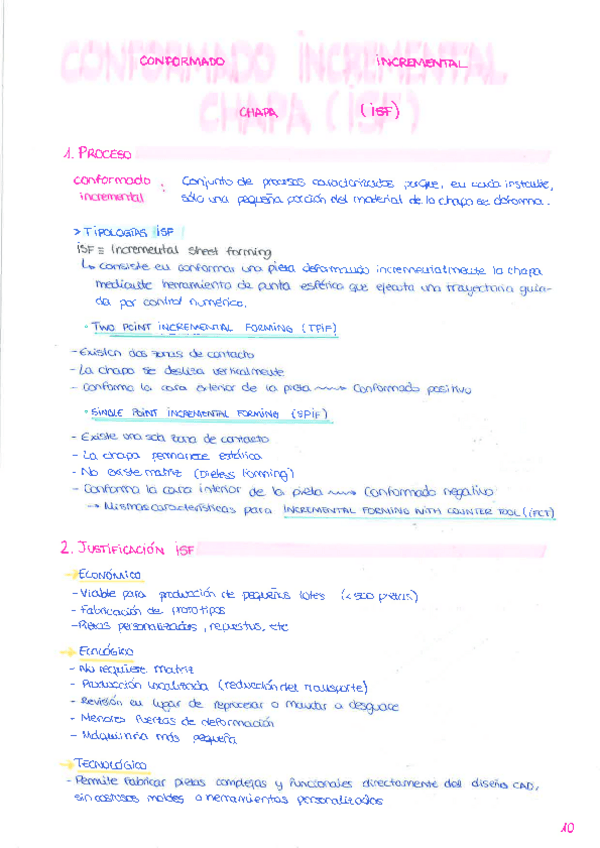 CONFORMADO INCREMENTAL
CHAPA (ISF)
1. PROCESO
conformado incremental : Conjunto de procesos caracterizados porque, en cada instante,
sólo una pequeña porción del material de la chapa se deforma.
> TIPOLOGÍAS ISF
ISF ≡ Incremental sheet forming
↳ consiste en conformar una pieza deformando incrementalmente la chapa
mediante herramienta de punta esférica que ejecuta una trayectoria guia-
da por control numérico.
· TWO POINT INCREMENTAL FORMING (TPIF)
- Existen dos zonas de contacto
- La chapa se desliza verticalmente
- Conforma la cara exterior de la pieza ⟿ Conformado positivo
· SINGLE POINT INCREMENTAL FORMING (SPIF)
- Existe una sola zona de contacto
- La chapa permanece estática
- No existe matriz (Dieless Forming)
- Conforma la cara interior de la pieza ⟿ Conformado negativo
→ Mismas características para INCREMENTAL FORMING WITH COUNTER TOOL (IFCT)
2. JUSTIFICACIÓN ISF
→ ECONÓMICO
- Viable para producción de pequeños lotes (<500 piezas)
- Fabricación de prototipos
- Piezas personalizadas, repuestos, etc
→ ECOLÓGICO
- No requiere matriz
- Producción localizada (reducción del transporte)
- Revisión en lugar de reprocesar o mandar a desguace
- Menores fuerzas de deformación
- Maquinaria más pequeña
→ TECNOLÓGICO
- Permite fabricar piezas complejas y funcionales directamente del diseño CAD,
sin costosos moldes o herramientas personalizadas
10